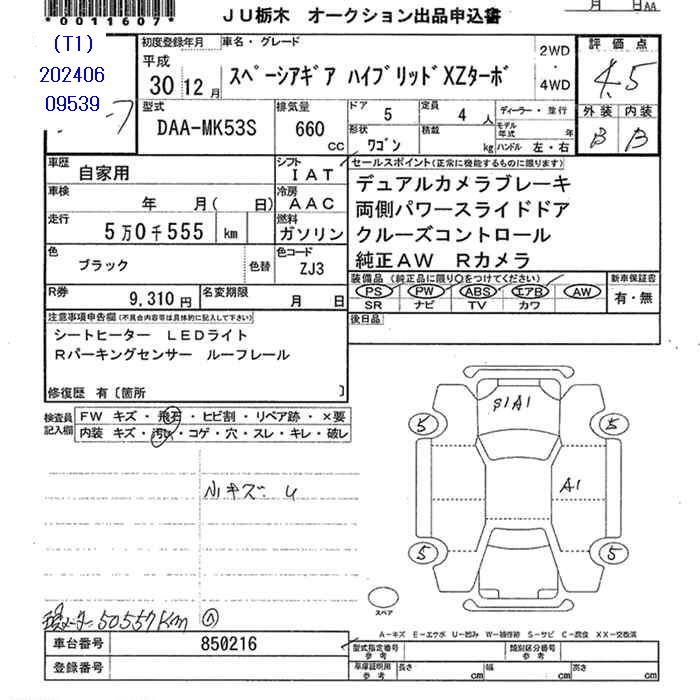 *0011607*
JU栃木 オークション出品申込書
月 日AA
(T1)
202406
09539
初度登録年月 車名・グレード
平成
30 12月
スペーシアギア ハイブリッドXZターボ
2WD
・
4WD
評価点
4.5
外装 内装
B B
型式
DAA-MK53S
排気量
660
cc
ドア
5
定員
4人
形状
ワゴン
積載
kg
ディーラー・並行
モデル年式 年
ハンドル 左・右
車歴
自家用
シフト
IAT
車検
年 月( 日)
冷房
AAC
走行
5万0千555 km
燃料
ガソリン
色
ブラック
色替
色コード
ZJ3
R券
9,310円
名変期限
月 日
セールスポイント(正常に機能するものに限ります)
デュアルカメラブレーキ
両側パワースライドドア
クルーズコントロール
純正AW Rカメラ
装備品(純正品に限り○をつけてください)
新車保証書
PS PW ABS エアB AW
SR ナビ TV カワ
有・無
後日品
注意事項申告欄(不具合内容等は具体的に記入して下さい)
シートヒーター LEDライト
Rパーキングセンサー ルーフレール
修復歴 有〔箇所 〕
検査員
記入欄
FW キズ・飛石・ヒビ割・リペア跡・×要
内装 キズ・汚れ・コゲ・穴・スレ・キレ・破レ
小キズ・U
S1A1
5 5
A1
5 5
スペア
50557Km
A―キズ E―エクボ U―凹み W―補修跡 S―サビ C―腐食 XX―交換済
車台番号
850216
登録番号
型式指定番号
参考
類別区分番号
参考
車庫証明用
参考
長さ cm 幅 cm 高さ cm